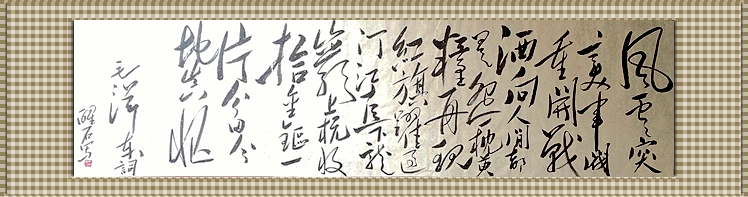 風云突
变軍閥
重開戰
洒向人間都
是怨一枕黄
粱再現
紅旗躍過
汀江直下龍
岩上杭收
拾金甌一
片分田分
地真忙
毛澤東詞
醒石写